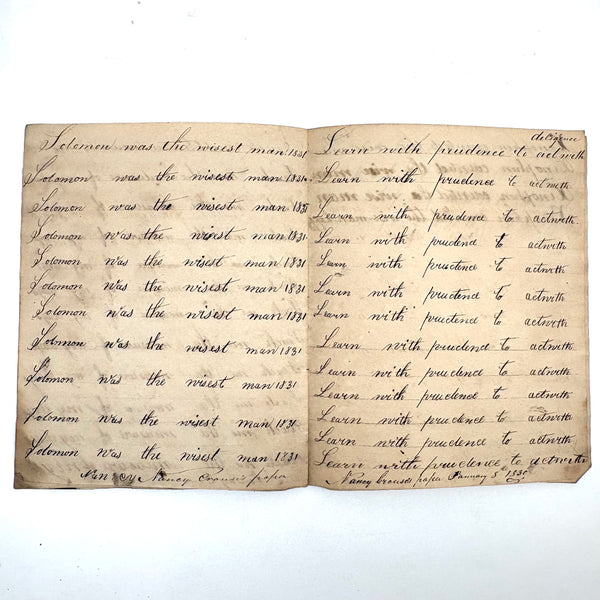 Solomon was the wisest man 1831
Solomon was the wisest man 1831
Solomon was the wisest man 1831
Solomon was the wisest man 1831
Solomon was the wisest man 1831
Solomon was the wisest man 1831
Solomon was the wisest man 1831
Solomon was the wisest man 1831
Solomon was the wisest man 1831
Solomon was the wisest man 1831
Solomon was the wisest man 1831
Nancy Nancy Crouse's paper
diligence
Learn with prudence to actwith
Learn with prudence to actwith
Learn with prudence to actwith.
Learn with prudence to actwith
Learn with prudence to actwith
Learn with prudence to actwith
Learn with prudence to actwith
Learn with prudence to actwith
Learn with prudence to actwith
Learn with prudence to actwith
Learn with prudence to actwith
Learn with prudence to actwith
Learn with prudence to actwith
Nancy Crouse's paper 1830